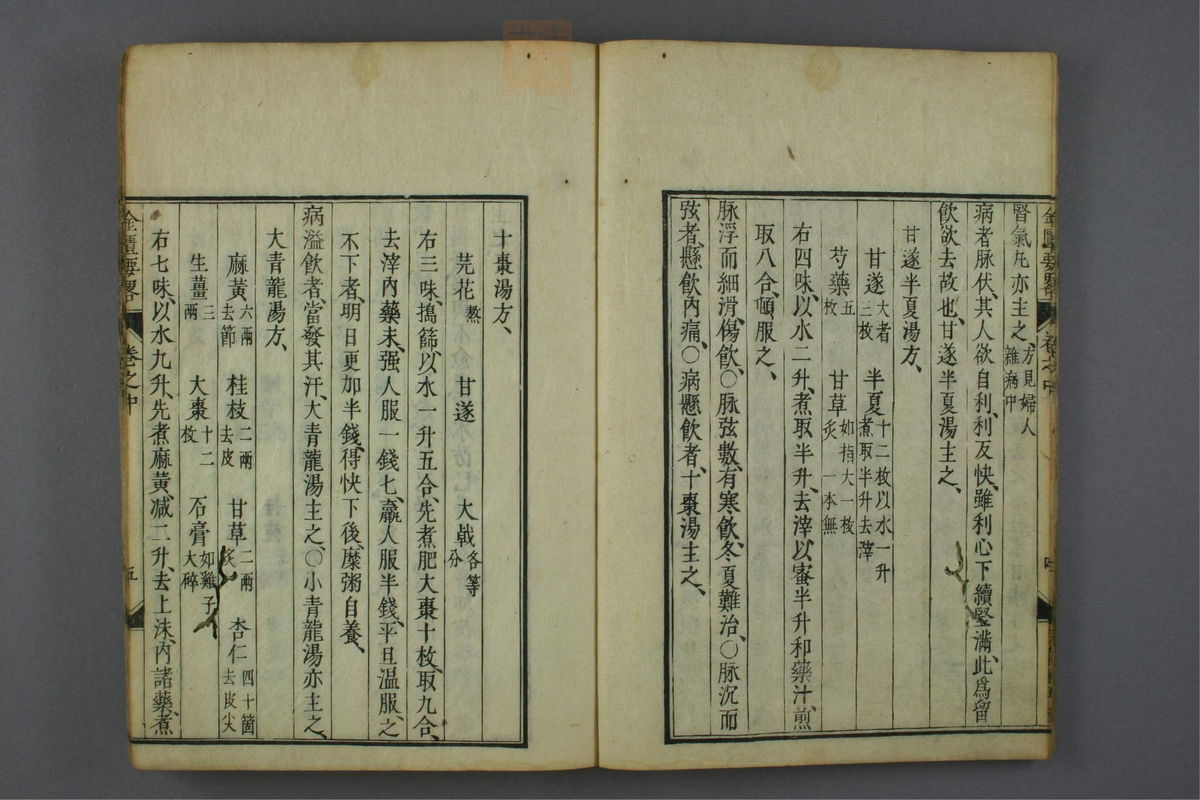 腎氣丸亦主之、方見婦人雜病中
病者脉伏、其人欲自利、利反快、雖利心下續堅滿、此爲留
飲欲去故也、甘遂半夏湯主之、
甘遂半夏湯方、
甘遂大者三枚 半夏十二枚以水一升煮取半升去滓
芍藥五枚 甘草如指大一枚炙一本無
右四味、以水二升、煮取半升、去滓、以蜜半升和藥汁、煎
取八合、頓服之、
脉浮而細滑、傷飲、〇脉弦數、有寒飲、冬夏難治、〇脉沉而
弦者、懸飲內痛、〇病懸飲者、十棗湯主之、
十棗湯方、
芫花熬 甘遂 大戟各等分
右三味、擣篩、以水一升五合、先煮肥大棗十枚、取九合、
去滓、內藥末、强人服一錢匕、羸人服半錢、平旦温服、之
不下者、明日更加半錢、得快下後、糜粥自養、
病溢飲者、當發其汗、大青龍湯主之、〇小青龍湯亦主之、
大青龍湯方、
麻黃六兩去節 桂枝二兩去皮 甘草二兩炙 杏仁四十箇去皮尖
生薑三兩 大棗十二枚 石膏如雞子大碎
右七味、以水九升、先煮麻黃、减二升、去上沫、內諸藥、煮
金匱要畧 卷之中 五